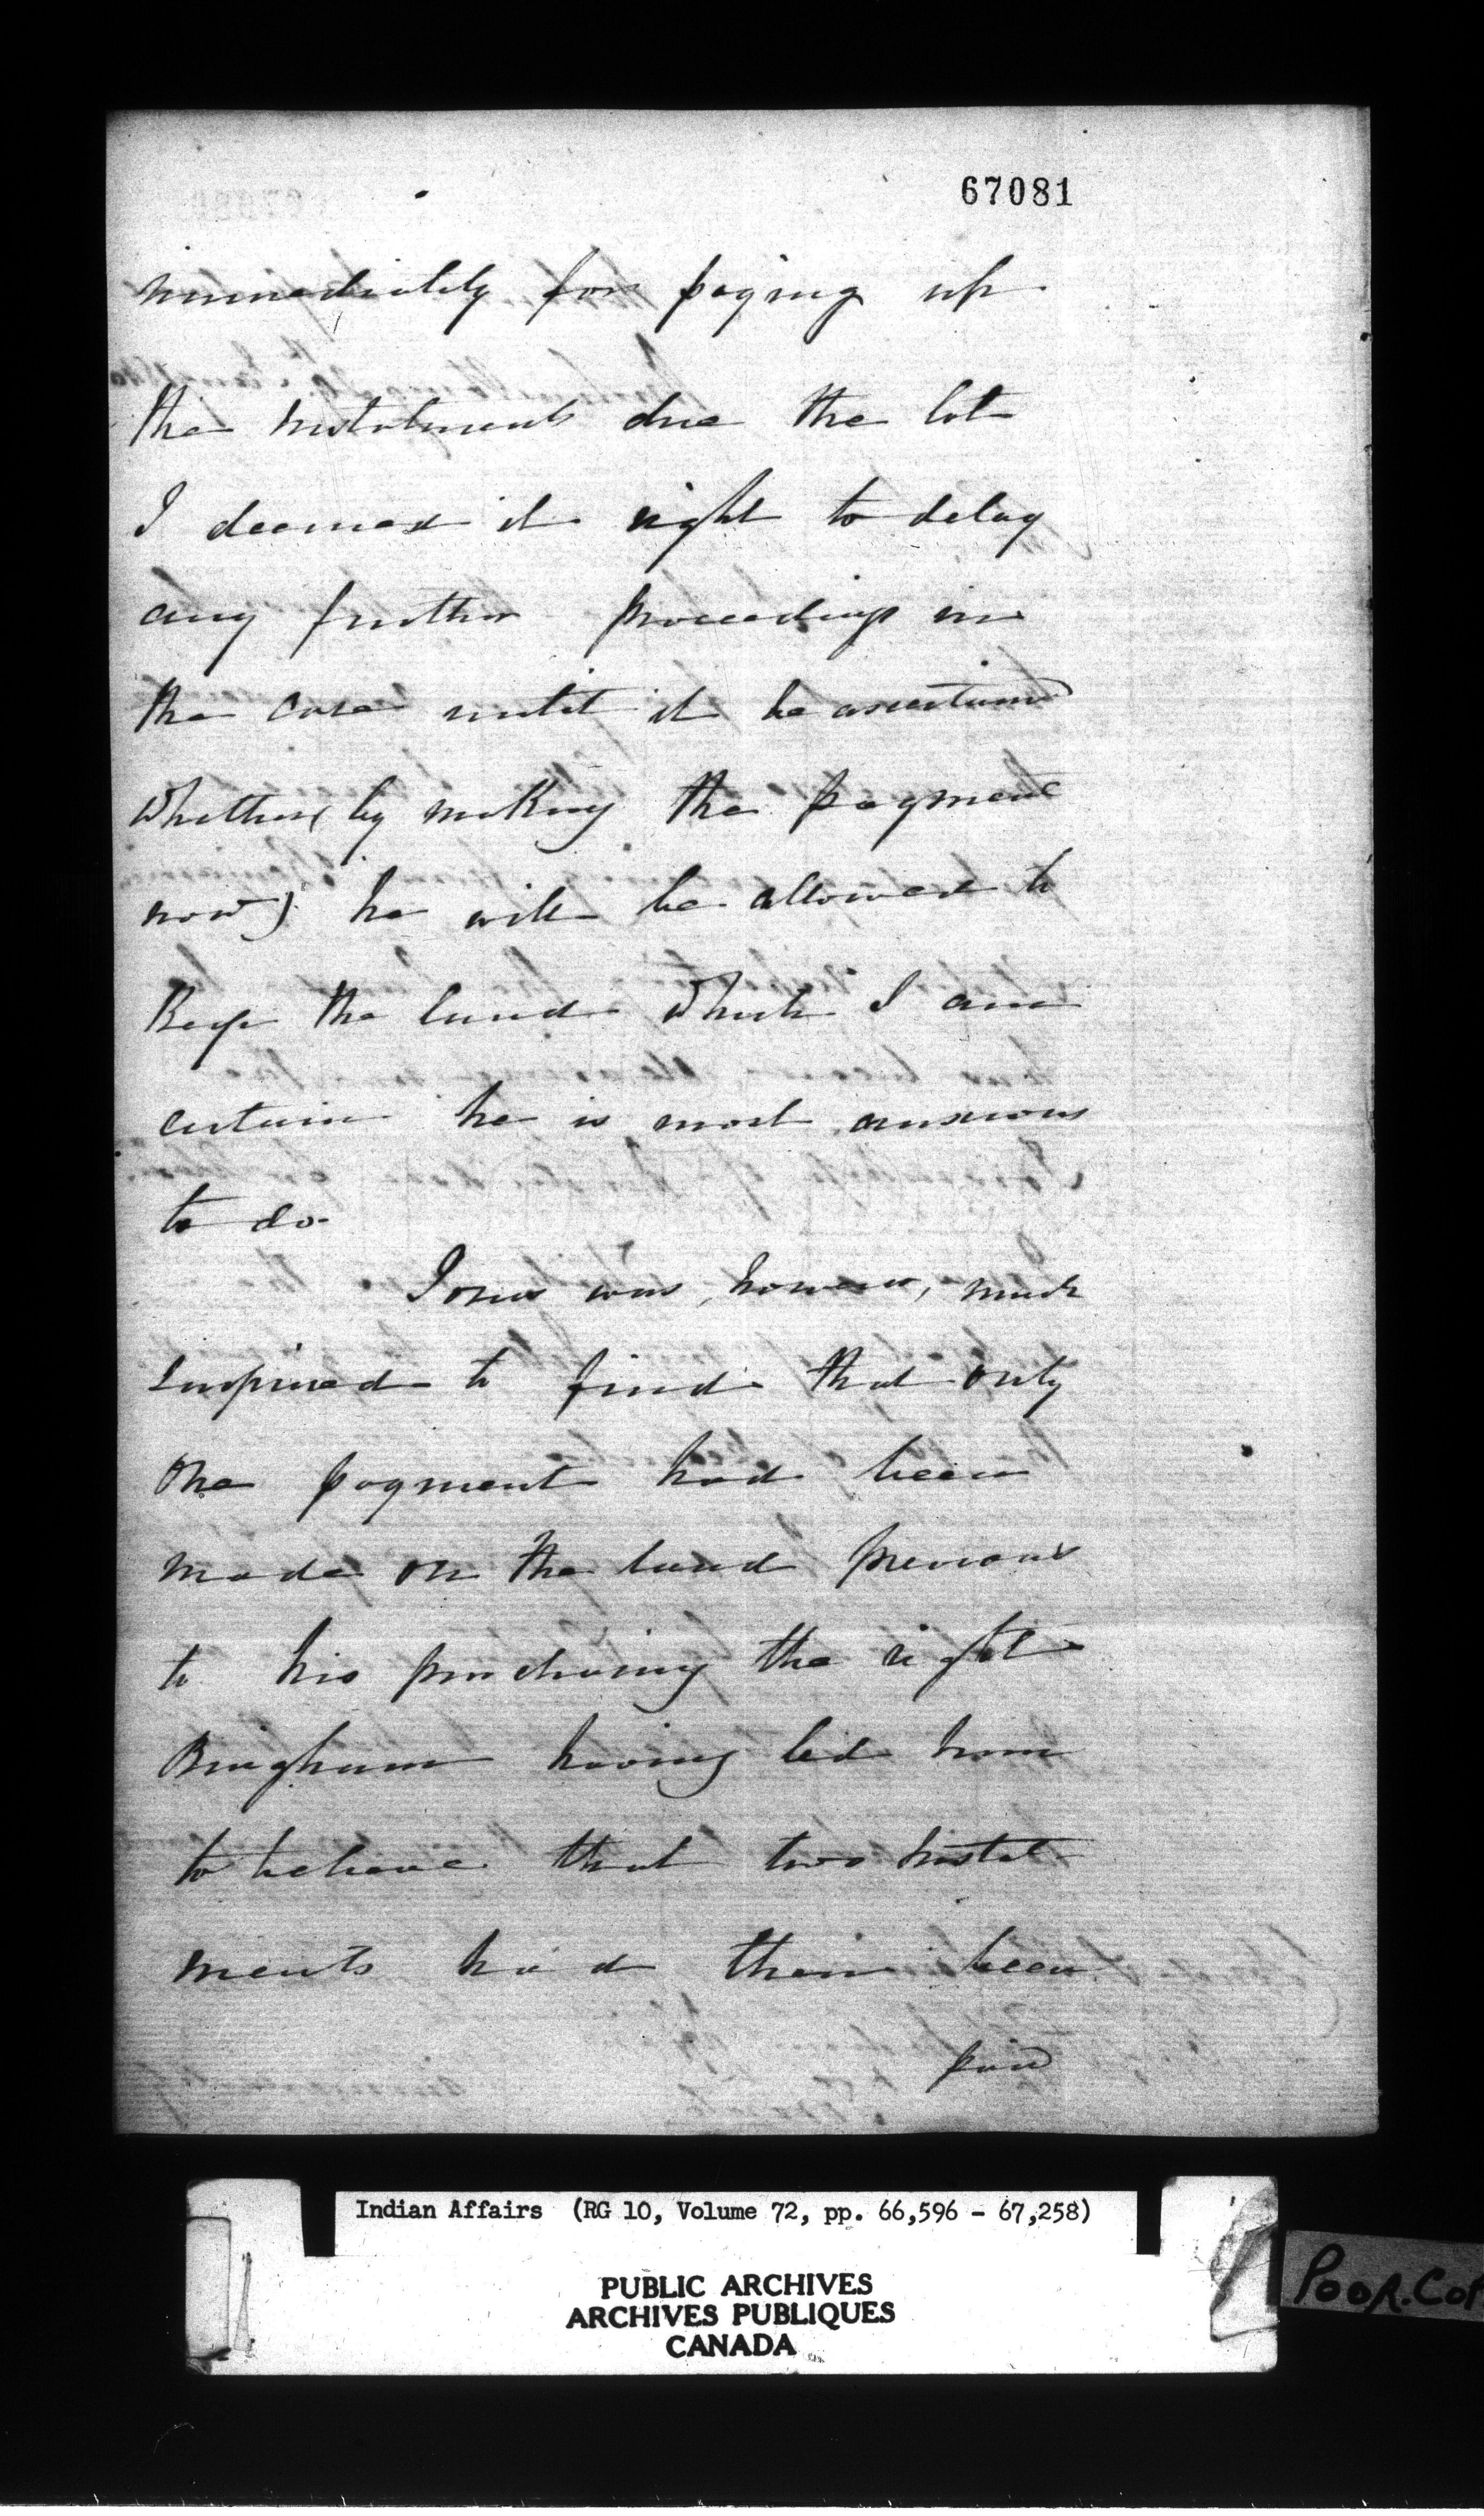 67081
immediately for paying up
the instalments due the lot
I deemed it right to delay
any further proceedings in
the case until it be ascertained
whether (by making the payment
now) he will be allowed to
keep the land which I am
certain he is most anxious
to do.
Jones was, however, much
surprised to find that only
one payment had been
made on the land previous
to his purchasing the right
Bingham having led him
to believe that two instal
ments had then been
paid
Indian Affairs (RG 10, Volume 72, pp. 66,596 - 67,258)
PUBLIC ARCHIVES
ARCHIVES PUBLIQUES
CANADA
POOR.COP